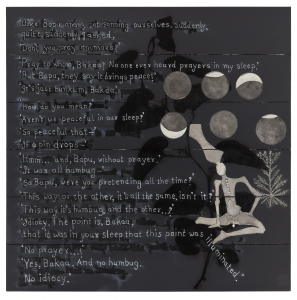 "Once Bapu and I, sat sunning ourselves. Suddenly,
quite suddenly, I asked,
'Don't you pray anymore?'
'Pray to whom, Bakaa? No one ever heard prayers in my sleep.'
'But Bapu, they say it brings peace!'
'It's just bunkum, Bakaa.'
'How do you mean?'
'Aren't we peaceful in our sleep?'
'So peaceful that—'
'If a pin drops—'
'Hmm... and, Bapu, without prayer.'
'It was all humbug—'
'So Bapu, were you pretending all the time?'
'This way or the other, it's all the same, isn't it?'
'This way it's humbug, and the other...?'
'Idiocy. The point is, Bakaa,
that it was in your sleep that this point was
illuminated.'
'No prayer...'
'Yes, Bakaa. And no humbug.
No idiocy.